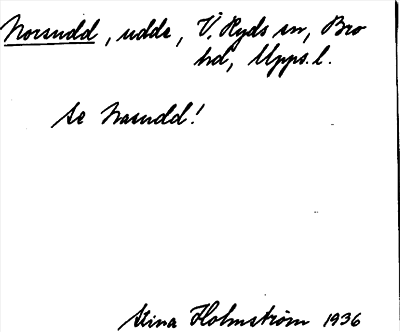 Norsudd, udde, V. Ryds sn, Bro
hd, Upps. l.
Se Nasudd!
Stina Holmström 1936